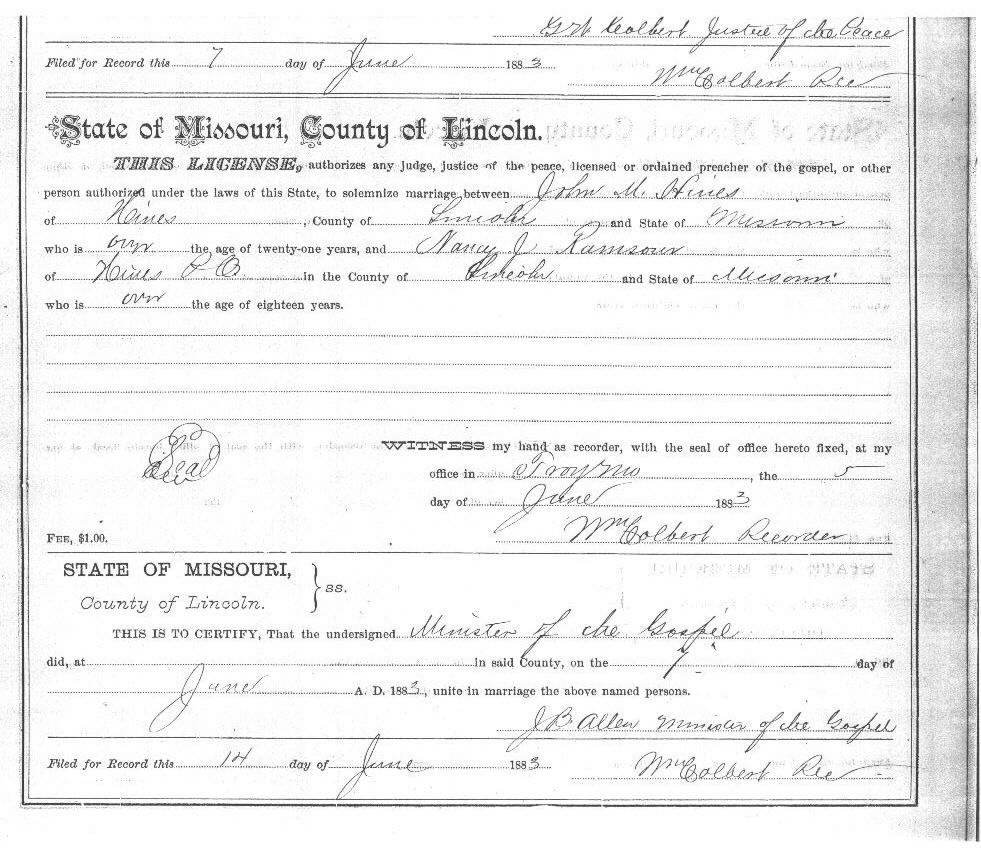 Justice of the Peace
Filed for Record this 7 day of June 1883
Wm Colbert Rec
State of Missouri, County of Lincoln.
THIS LICENSE, authorizes any judge, justice of the peace, licensed or ordained preacher of the gospel, or other
person authorized under the laws of this State, to solemnize marriage between John M. Hines
of Hines, County of Lincoln and State of Missouri
who is over the age of twenty-one years, and Nancy J Ramsour
of Hines P O in the County of Lincoln and State of Missouri
who is over the age of eighteen years.
WITNESS my hand as recorder, with the seal of office hereto fixed, at my
Seal
office in Troy Mo, the 5
day of June 1883
Wm Colbert Recorder
FEE, $1.00.
STATE OF MISSOURI,
County of Lincoln. } ss.
THIS IS TO CERTIFY, That the undersigned Minister of the Gospel
did, at in said County, on the 7 day of
June A. D. 1883, unite in marriage the above named persons.
J B Allen Minister of the Gospel
Filed for Record this 14 day of June 1883
Wm Colbert Rec